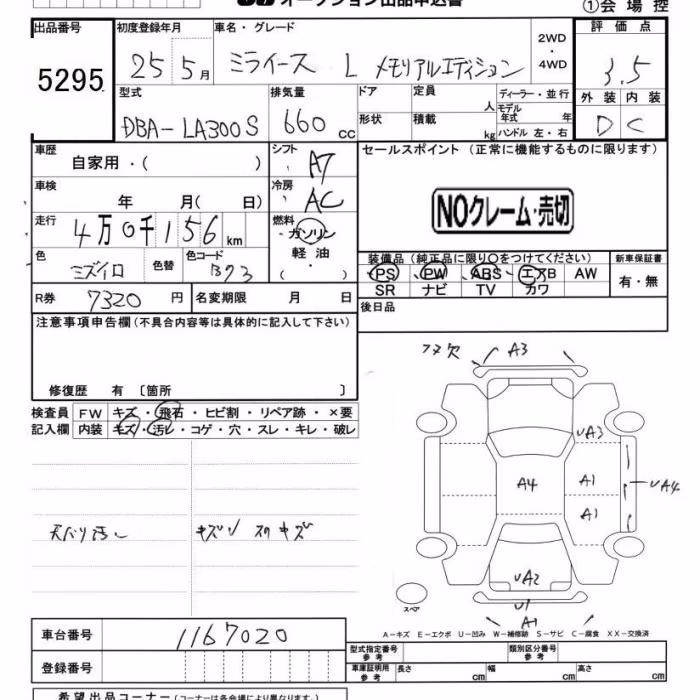 オークション出品申込書
①会場控
出品番号 初度登録年月 車名・グレード 評価点
5295 25 5月 ミライース L メモリアルエディション 2WD・4WD 3.5
型式 排気量 ドア 定員 人 ディーラー・並行 外装 内装
DBA-LA300S 660cc 形状 積載 kg モデル年式 年 ハンドル 左・右 D C
車歴 シフト セールスポイント (正常に機能するものに限ります)
自家用・( ) AT
車検 冷房
年 月( 日) AC NOクレーム・売切
走行 燃料
4万0千156km ガソリン・軽油・( )
色 色替 色コード 装備品 (純正品に限り○をつけてください) 新車保証書
ミズイロ B73 PS PW ABS エアB AW 有・無
R券 7320円 名変期限 月 日 SR ナビ TV カワ
後日品
注意事項申告欄 (不具合内容等は具体的に記入して下さい)
修復歴 有 〔箇所 〕
検査員 FW キズ・飛石・ヒビ割・リペア跡・×要
記入欄 内装 キズ・汚レ・コゲ・穴・スレ・キレ・破レ
A3
UA3
A4 A1 UA4
A1
天バリ汚レ
UA2
スペア
U1
A1
A-キズ E-エクボ U-凹み W-補修跡 S-サビ C-腐食 XX-交換済
車台番号 1167020
登録番号
型式指定番号 参考 類別区分番号 参考
車庫証明用 参考 長さ cm 幅 cm 高さ cm
希望出品コーナー (コーナーは各会場により異なります。)